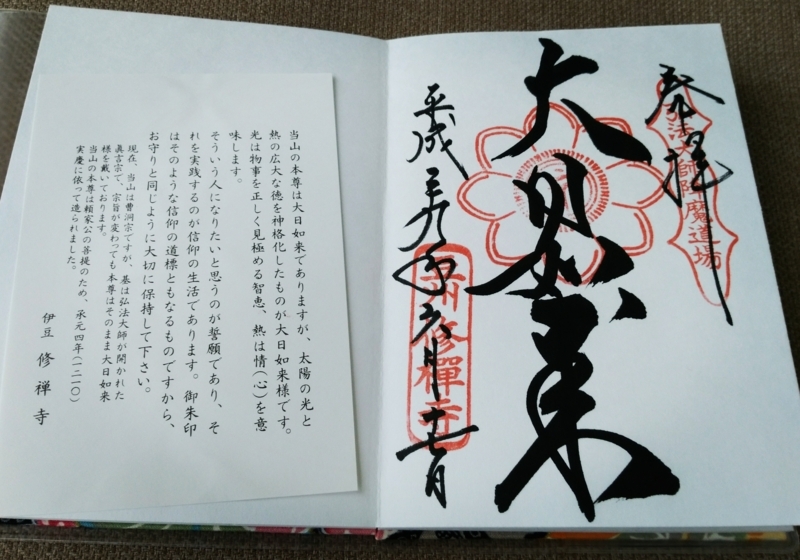 奉拝
弘法大師降魔道場
大日如来
平成二九年六月十七日
豆州修禪寺
当山の本尊は大日如来でありますが、太陽の光と
熱の広大な徳を神格化したものが大日如来様です。
光は物事を正しく見極める智恵、熱は情(心)を意
味します。
そういう人になりたいと思うのが誓願であり、そ
れを実践するのが信仰の生活であります。御朱印
はそのような信仰の道標ともなるものですから、
お守りと同じように大切に保持して下さい。
現在、当山は曹洞宗ですが、基は弘法大師が開かれた
眞言宗で、宗旨が変わっても本尊はそのまま大日如来
様を戴いております。
当山の本尊は頼家公の菩提のため、承元四年(一二一〇)
実慶に依って造られました。
伊豆 修禅寺